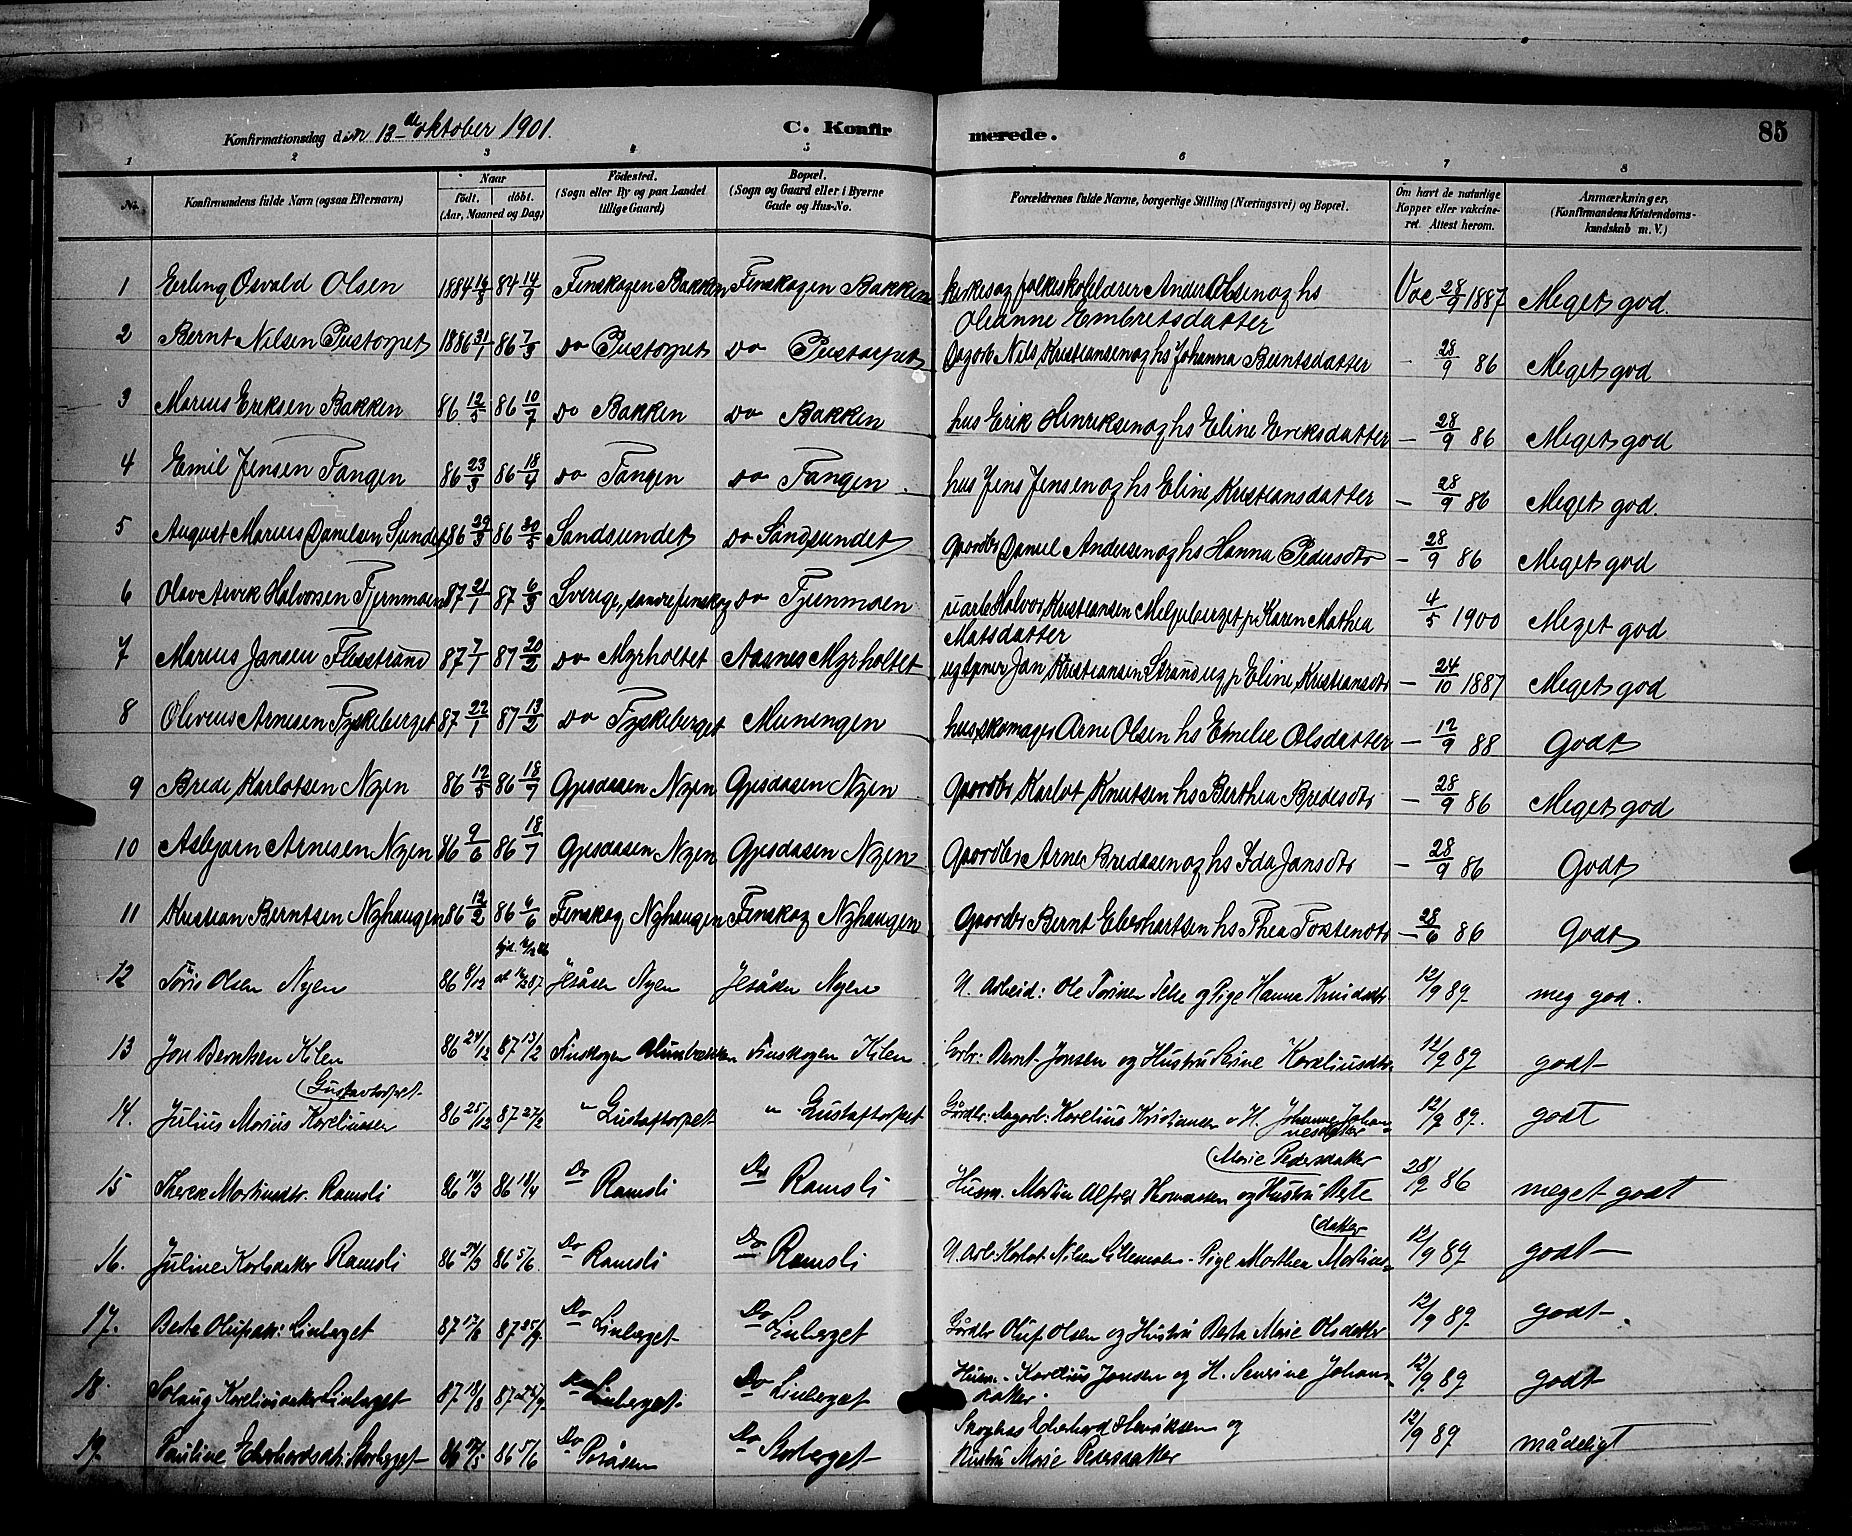 Konfirmationsdag den 13de oktober 1901. C. Konfirmerede. 85
1 2 3 4 5 6 7 8
No. Konfirmandens fulde Navn (ogsaa Efternavn) Naar født. døbt. (Aar, Maaned og Dag) Fødested. (Sogn eller By og paa Landet tillige Gaard) Bopæl. (Sogn og Gaard eller i Byerne Gade og Hus-No. Forældrenes fulde Navne, borgerlige Stilling (Næringsvei) og Bopæl. Om havt de naturlige Kopper eller vakcineret. Attest herom. Anmærkninger. (Konfirmandens Kristendomskundskab m. V.)
1 Erling Osvald Olsen 1884 84 14/9 Finskogen Bakken Finskogen Bakken kirkesog folkeskolelærer Olsen og hs Vac 28/9 1887 Meget god.
Oleanne Embretsdatter
2 Bernt Nilsen Pustorpet 1886 31/1 86 7/3 Do Pustorpet Do Pustorpet Nils Kristiansen og hs Johanna Berntsdatter - 28/9 86 Meget god
3 Marius Eriksen Bakken 86 12/5 86 10/7 Do Bakken Do Bakken hus Erik Henriksen og hs Eline Eriksdatter - 28/9 86 Meget god
4 Emil Jensen Tangen 86 23/3 86 18/4 Do Tangen Do Tangen hus Jens Jensen og hs Eline Kristiansdatter - 28/9 86 Meget god.
5 August Marius Danielsen Sundet 86 29/3 86 30/5 Sandsundet Do Sandsundet Gaardbr Daniel Andersen og hs Hanna Pedersdtr - 28/9 86 Meget god
6 Olav Arvik Halvorsen Fjernmoen 87 21/1 87 6/3 Sverige, søndre finskog Do Fjernmoen uarb Halvor Kristiansen p Karen Mathea 4/5 1900 Meget god
Matsdatter
7 Marius Jansen Flisstrand 87 7/1 87 20/2 Do Myrholtet Aasnes Myrholtet Jan Kristiansen Strand ug p Eline Kristiansdtr - 24/10 1887 Meget god
8 Oliveus Arnesen Fyskeberget 87 22/1 87 13/2 Do Fyskeberget Meningen hus skomager Arne Olsen hs Emelie Olsdatter - 12/9 88 Godt
9 Brede Karlotsen Nyen 86 12/5 86 18/7 Gjesdaasen Nyen Gjesdaasen Nyen Gaardbr Karlot Knutsen hs Berthea Bredesdtr - 28/9 86 Meget god
10 Asbjørn Arnesen Nyen 86 9/6 86 18/7 Gjesdaasen Nyen Gjesdaasen Nyen Gaardbr Arne Bredesen og hs Ida Jansdtr - 28/9 86 Godt
11 Kristian Berntsen Nyhaugen 86 12/2 86 6/6 Finskog Nyhaugen Finskog Nyhaugen Gaardbr Bernt Eberhartsen hs Thea Tostensdtr - 28/6 86 Godt
12 Olsen Nyen 86 8/12 87 Nyen Nyen U. Arbeid: Ole og Pige Hanna 12/9 89 meg god.
13 Jon Berntsen Kilen 86 24/12 87 13/2 Finskogen Finskogen Kilen Bernt Jonsen og Hustru Korneliusdtr 12/9 89 godt
(Gustavtorpet
14. Julius Marius Korneliussen 86 25/12 87 27/2 " Gustaftorpet " Gustaftorpet Gårdbr: Dagarb: Kornelius Kristiansen o H. Johanne Johannesdatter 12/9 89. godt
(Marie Pedersdatter
15 Martinsdtr. Ramsli 86 86 18/4 Do Ramsli Do Ramsli Husm. Martin Alfred og Hustru Berte 28/9 86 meget godt
(datter
16. Juline Karlsdatter Ramsli 86 86 5/6. Do Ramsli Do Ramsli U. Arb: Karlot Nilsen - Pige Marthea Martins- 12/9 89 godt
17. Berte Olufsdtr: Linberget 87 17/6 87 25/9 Do Linberget Do Linberget Gårdbr Oluf Olsen og Hustru Berta Marie Olsdatter 12/9 89 godt
18 Solaug Korneliusdatter Linberget 87 18/8 87 25/9 Do Linberget Do Linberget Husm. Kornelius Jonsen og H. Severine Johans- 12/9 89 godt
datter.
19. Pauline Eberhardsdtr: Storberget 86 86 5/6 Do Do Storberget Eberhard Henriksen og 12/9 89 mådeligt
Hustru Marie Pedersdatter